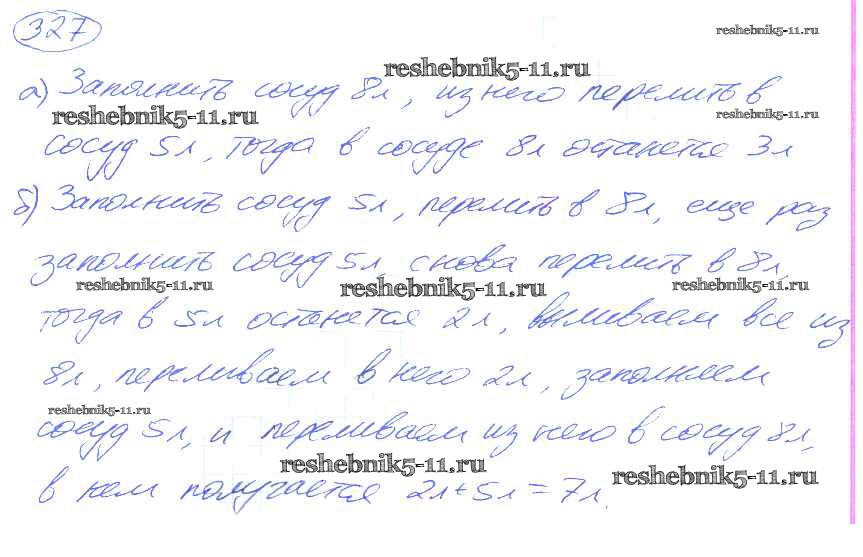 327
reshebnik5-11.ru
reshebnik5-11.ru
а) Заполнить сосуд 8л, из него перелить в
reshebnik5-11.ru
reshebnik5-11.ru
сосуд 5л, тогда в сосуде 8л останется 3л
б) Заполнить сосуд 5л, перелить в 8л, еще раз
заполнить сосуд 5л, снова перелить в 8л,
reshebnik5-11.ru
reshebnik5-11.ru
reshebnik5-11.ru
тогда в 5л останется 2л, выливаем все из
8л, переливаем в него 2л, заполняем
reshebnik5-11.ru
сосуд 5л, и переливаем из него в сосуд 8л,
reshebnik5-11.ru
reshebnik5-11.ru
в нем получается 2л+5л=7л.